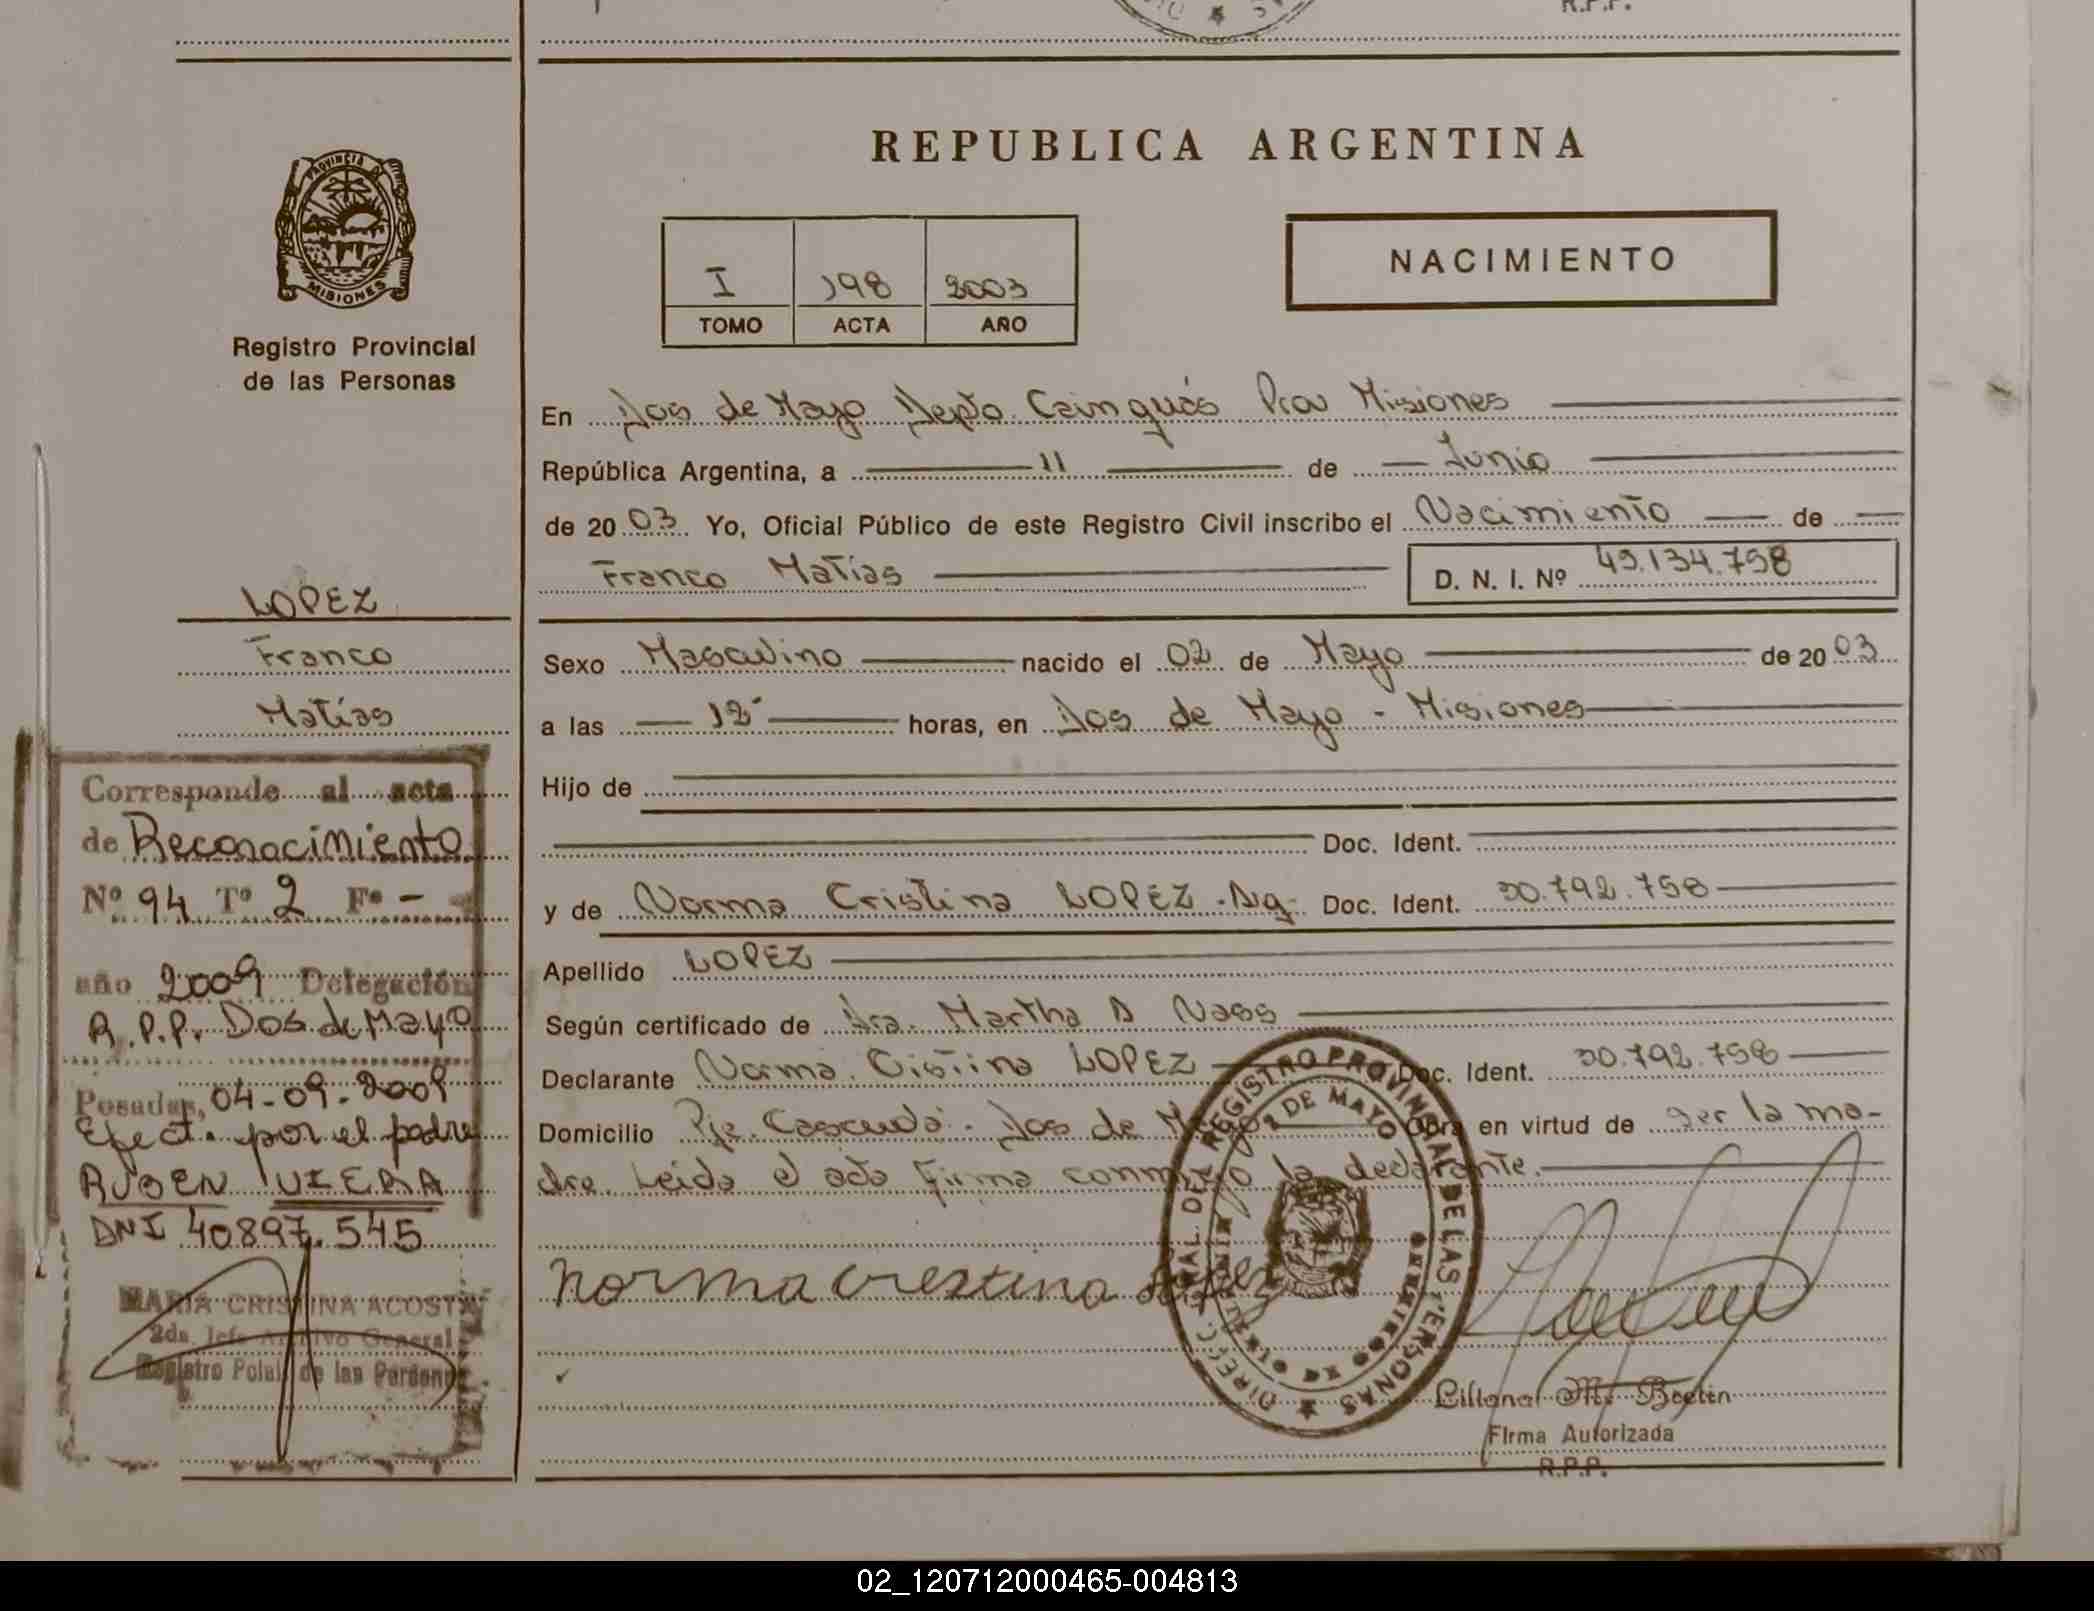 R.P.P.
REPUBLICA ARGENTINA
PROVINCIA DE
MISIONES
Registro Provincial
de las Personas
I 198 2003
TOMO ACTA AÑO
NACIMIENTO
En Dos de Mayo Depto. Cainguás Prov Misiones
República Argentina, a 11 de Junio
de 2003 Yo, Oficial Público de este Registro Civil inscribo el Nacimiento de
Franco Matías D. N. I. Nº 45.134.758
LOPEZ
Franco
Matías
Sexo Masculino nacido el 02 de Mayo de 2003
a las 12 horas, en Dos de Mayo - Misiones
Hijo de
Doc. Ident.
y de Norma Cristina LOPEZ Arg. Doc. Ident. 30.792.758
Apellido LOPEZ
Según certificado de Dra. Martha A Nass
Declarante Norma Cistina LOPEZ Doc. Ident. 30.792.758
Domicilio Pje. Dos de Mayo Obra en virtud de ser la ma-
dre. Leida el acta firma conmigo la declarante.
norma crestina lopez
Corresponde al acta
de Reconocimiento
Nº 94 Tº 2 Fº -
año 2009 Delegación
R.P.P. Dos de Mayo
Posadas, 04-09-2009
Efect. por el padre
RUBEN VIERA
DNI 40897.545
MARIA CRISTINA ACOSTA
2da. Jefe Archivo General
Registro de las Personas
DIRECC. GRAL. DEL REGISTRO PROVINCIAL DE LAS PERSONAS
2 DE MAYO
Liliana
Firma Autorizada
R.P.P.
02_120712000465-004813